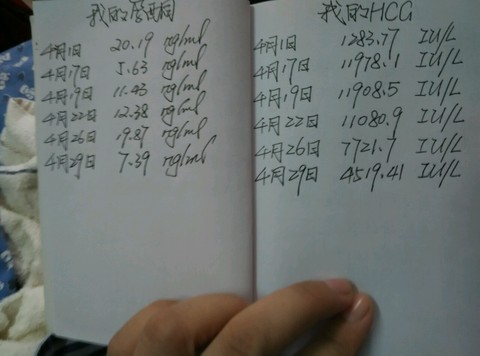 我的孕酮
4月1日 20.19 ng/ml
4月17日 5.63 ng/ml
4月19日 11.43 ng/ml
4月22日 12.38 ng/ml
4月26日 19.87 ng/ml
4月29日 7.39 ng/ml
我的HCG
4月1日 1283.77 IU/L
4月17日 11978.1 IU/L
4月19日 11908.5 IU/L
4月22日 11080.9 IU/L
4月26日 7721.7 IU/L
4月29日 4519.41 IU/L